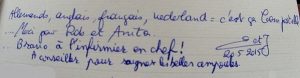 Allemands, anglais, français, nederland = c'est ça Compostelle
...Mené par Rob et Anita.
... Bravo à l'infirmier en chef!
A conseiller pour soigner les belles ampoules.
20.5.2015